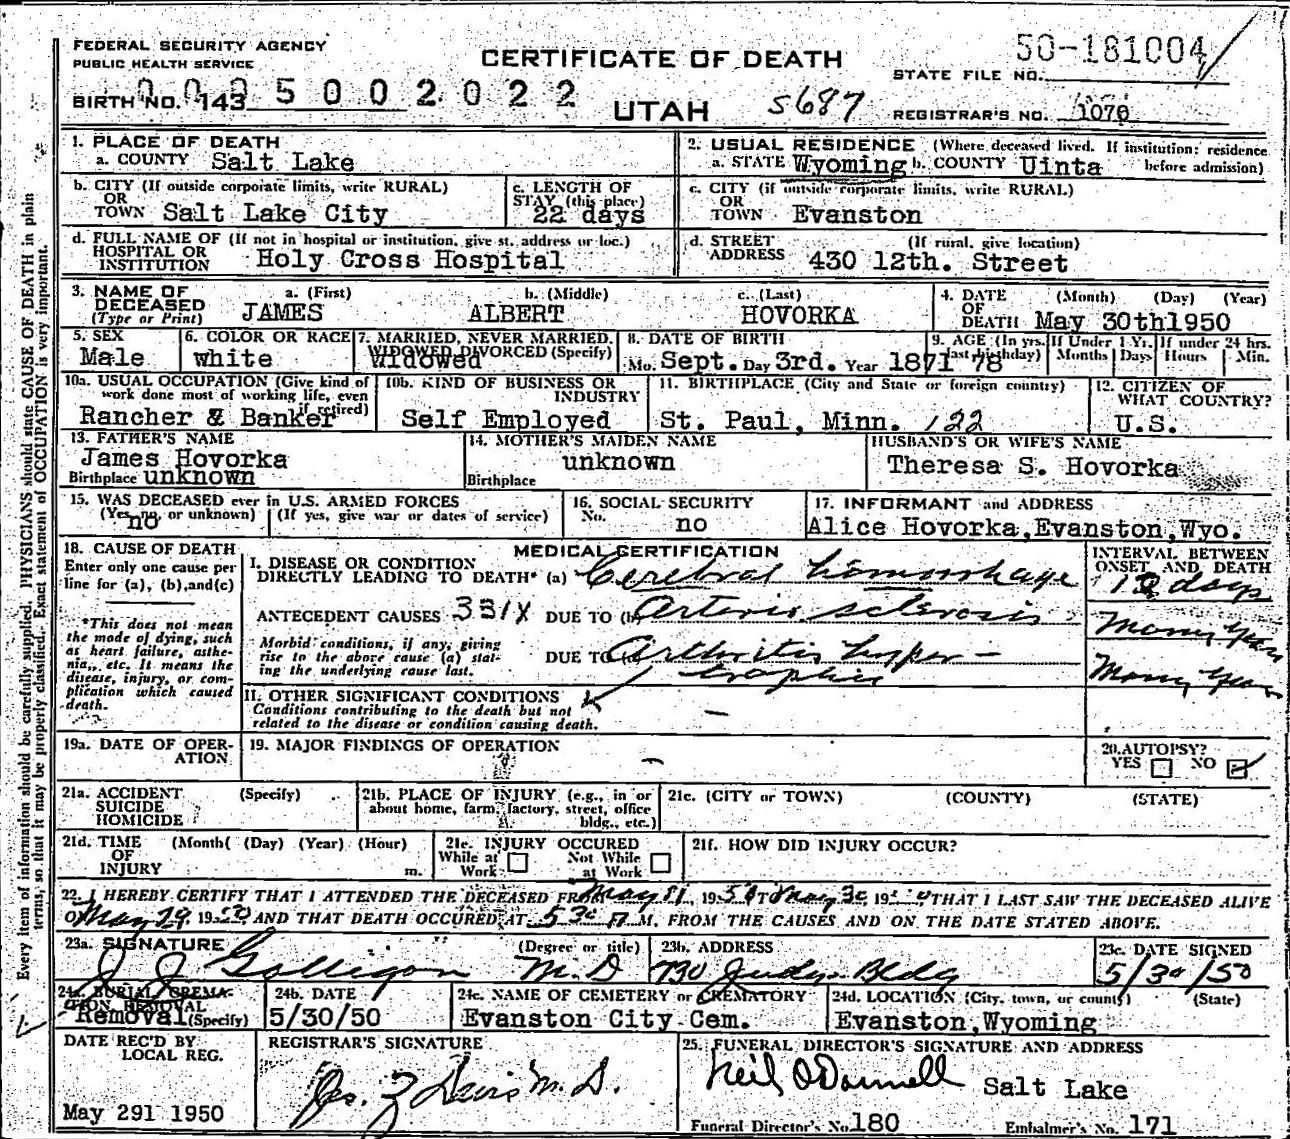 FEDERAL SECURITY AGENCY
PUBLIC HEALTH SERVICE
CERTIFICATE OF DEATH
50-181004
STATE FILE NO.
BIRTH NO. 143
0095002022
UTAH
5687
REGISTRAR'S NO. 1076
1. PLACE OF DEATH
a. COUNTY Salt Lake
2. USUAL RESIDENCE (Where deceased lived. If institution: residence before admission)
a. STATE Wyoming b. COUNTY Uinta
b. CITY (If outside corporate limits, write RURAL)
OR
TOWN Salt Lake City
c. LENGTH OF
STAY (this place)
22 days
c. CITY (if outside corporate limits, write RURAL)
OR
TOWN Evanston
d. FULL NAME OF (If not in hospital or institution, give st. address or loc.)
HOSPITAL OR
INSTITUTION Holy Cross Hospital
d. STREET (If rural, give location)
ADDRESS 430 12th. Street
3. NAME OF
DECEASED
(Type or Print)
a. (First) b. (Middle) c. (Last)
JAMES ALBERT HOVORKA
4. DATE (Month) (Day) (Year)
OF
DEATH May 30th1950
5. SEX
Male
6. COLOR OR RACE
white
7. MARRIED, NEVER MARRIED,
WIDOWED, DIVORCED (Specify)
Widowed
8. DATE OF BIRTH
Mo. Sept. Day 3rd. Year 1871
9. AGE (In yrs. last birthday)
78
If Under 1 Yr.
Months Days
If under 24 hrs.
Hours Min.
10a. USUAL OCCUPATION (Give kind of
work done most of working life, even
if retired)
Rancher & Banker
10b. KIND OF BUSINESS OR
INDUSTRY
Self Employed
11. BIRTHPLACE (City and State or foreign country)
St. Paul, Minn. 122
12. CITIZEN OF
WHAT COUNTRY?
U.S.
13. FATHER'S NAME
James Hovorka
Birthplace unknown
14. MOTHER'S MAIDEN NAME
unknown
Birthplace
HUSBAND'S OR WIFE'S NAME
Theresa S. Hovorka
15. WAS DECEASED ever in U.S. ARMED FORCES
(Yes, no, or unknown) (If yes, give war or dates of service)
no
16. SOCIAL SECURITY
No. no
17. INFORMANT and ADDRESS
Alice Hovorka,Evanston,Wyo.
18. CAUSE OF DEATH
Enter only one cause per
line for (a), (b),and(c)
*This does not mean
the mode of dying, such
as heart failure, asthe-
nia, etc. It means the
disease, injury, or com-
plication which caused
death.
MEDICAL CERTIFICATION
I. DISEASE OR CONDITION
DIRECTLY LEADING TO DEATH* (a) Cerebral hemorrhage
ANTECEDENT CAUSES 331X DUE TO (b) Arterio sclerosis
Morbid conditions, if any, giving
rise to the above cause (a) stat-
ing the underlying cause last.
DUE TO (c) Arthritis hyper-
trophic
INTERVAL BETWEEN
ONSET AND DEATH
days
Many years
Many years
II. OTHER SIGNIFICANT CONDITIONS
Conditions contributing to the death but not
related to the disease or condition causing death.
—
19a. DATE OF OPER-
ATION
19. MAJOR FINDINGS OF OPERATION
—
20. AUTOPSY?
YES NO
21a. ACCIDENT (Specify)
SUICIDE
HOMICIDE
21b. PLACE OF INJURY (e.g., in or
about home, farm, factory, street, office
bldg., etc.)
21c. (CITY or TOWN) (COUNTY) (STATE)
21d. TIME (Month( (Day) (Year) (Hour)
OF
INJURY m.
21e. INJURY OCCURED
While at Work Not While at Work
21f. HOW DID INJURY OCCUR?
22. I HEREBY CERTIFY THAT I ATTENDED THE DECEASED FROM May 1950 TO May 30 19 THAT I LAST SAW THE DECEASED ALIVE
ON May 29 1950 AND THAT DEATH OCCURED AT 530 M, FROM THE CAUSES AND ON THE DATE STATED ABOVE.
23a. SIGNATURE (Degree or title)
J J Galligan M.D
23b. ADDRESS
730 Judge Bldg
23c. DATE SIGNED
5/30/50
24a. BURIAL, CREMA-
TION, REMOVAL
Removal (Specify)
24b. DATE
5/30/50
24c. NAME OF CEMETERY or CREMATORY
Evanston City Cem.
24d. LOCATION (City, town, or county) (State)
Evanston,Wyoming
DATE REC'D BY
LOCAL REG.
May 291 1950
REGISTRAR'S SIGNATURE
M. D.
25. FUNERAL DIRECTOR'S SIGNATURE AND ADDRESS
Neil O'Donnell Salt Lake
Funeral Director's No. 180 Embalmer's No. 171
Every item of information should be carefully supplied. PHYSICIANS should state CAUSE OF DEATH in plain
terms, so that it may be properly classified. Exact statement of OCCUPATION is very important.